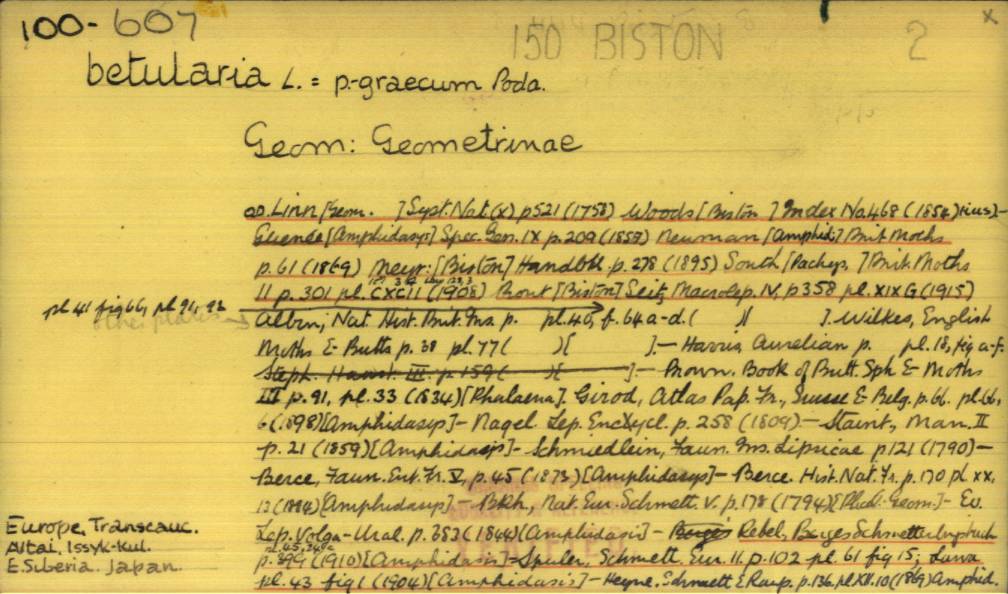 100-607
150 BISTON 2
x
betularia L. = p-graecum Poda.
Geom: Geometrinae
OD. Linn [Geom. ] Syst. Nat (X) p521 (1758) Woods [Biston ] Index No.468 (1854)
Guenée [Amphidasys] Spec. Gen. IX p. 209 (1857) Newman [Amphid:] Brit Moths
p. 61 (1869) Meyr: [Biston] Handbk. p. 278 (1895) South [Pachys. ] Brit. Moths
II p. 301 pl. CXCII (1908) Prout [Biston] Seitz Macrolep. IV, p358 pl. XIX G (1915)
pl 41 fig 66, pl. 91, 92
other plates
Albin, Nat Hist. Brit. Ins. p. pl. 40, f. 64 a-d. ( )[ ]. Wilkes, English
Moths & Butts p. 38 pl. 77 ( )[ ].- Harris, Aurelian p. pl. 18, fig a-f.
Steph. Haust. III. p. 159 ( )[ ]- Brown. Book of Butt. Sph & Moths
III p. 91, pl. 33 (1834) [Phalaena]. Girod, Atlas Pap. Fr., Suisse & Belg. p. 66. pl. 66,
6 (1898) [Amphidasys]- Nagel. Lep. Encycl. p. 258 (1809).- Staint, Man. II
p. 21 (1859) [Amphidasys]- Schmiedlein, Faun. Ins. Lipsicae p. 121 (1790)-
Berce, Faun. Ent. Fr. V, p. 45 (1873) [Amphidasys]- Berce. Hist. Nat. Fr. p. 170 pl XX,
Amphidasys] - Bkh, Nat. Eur. Schmett. V. p. 178 (1794) [Phal. Geom.]- Ev.
Lep. Volga-Ural. p. 383 (1844) [Amphidasis]- Berges Rebel, Berges Schmetterlingsbuch
(1910) [Amphidasis]- Spuler, Schmett. Eur. II. p. 102 pl. 61 fig 15; Larva
pl. 43 fig 1 (1904) [Amphidasis]- Heyne. Schmett & Raup. p. 136. pl XII. 10 (1869) Amphid.
Europe, Transcauc.
Altai, Issyk-Kul.
E Siberia. Japan.